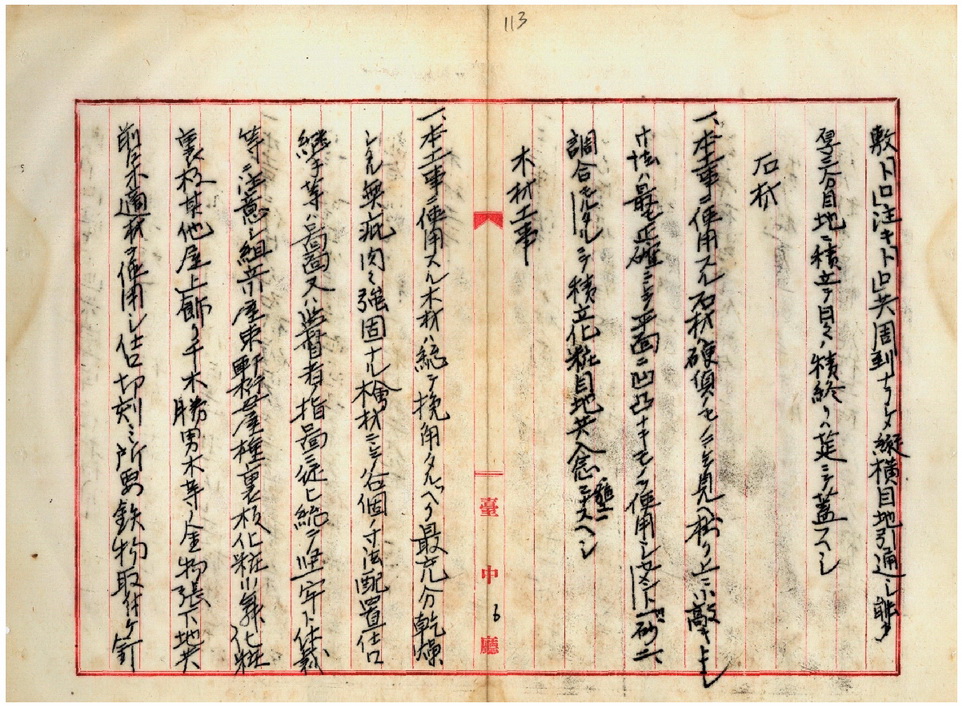 113
敷トロ注キトロ共周到ナラシメ縦横目地引通シ能ク
厚三分目地ニ積立テ日々ノ積終リハ筵ニテ蓋スヘシ
石材
一、本工事ニ使用スル石材ハ硬質ノモノニシテ見ヘ掛リ上ハ小敲キトシ
寸法ハ最モ正確ニシテ平面ニ凹凸ナキモノヲ使用シセメント一砂二ノ
調合モルタルニテ積立化粧目地共入念ニ施スヘシ
木材工事
一、本工事ニ使用スル木材ハ総テ挽角タルヘク最充分乾燥
シタル無疵肉々強固ナル檜材ニシテ各個ノ寸法配置仕口
継手等ハ図面又ハ監督者ノ指図ニ従ヒ総テ堅牢ト体裁
等ニ注意シ組立屋東軒桁母屋棰裏板化粧小舞化粧
裏板其他屋上飾リ千木勝男木等ノ金物張下地共
前記木適材ヲ使用シ仕口切刻ミ所要鉄物取付ケ釘
臺中廳
6